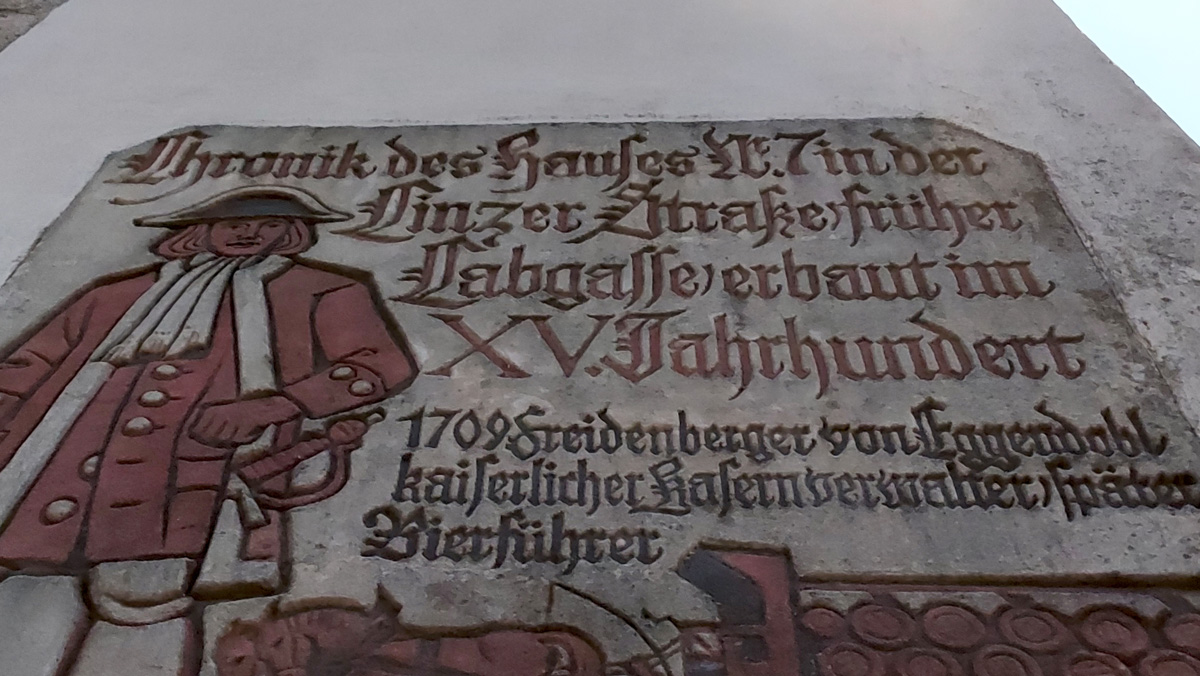 Chronik des Hauſes Nr. 7 in der
Linzer Straße, früher
Labgaſſe, erbaut im
XV. Jahrhundert
1709 Freidenberger von Eggendobl
kaiſerlicher Kaſernverwalter, ſpäter
Bierführer